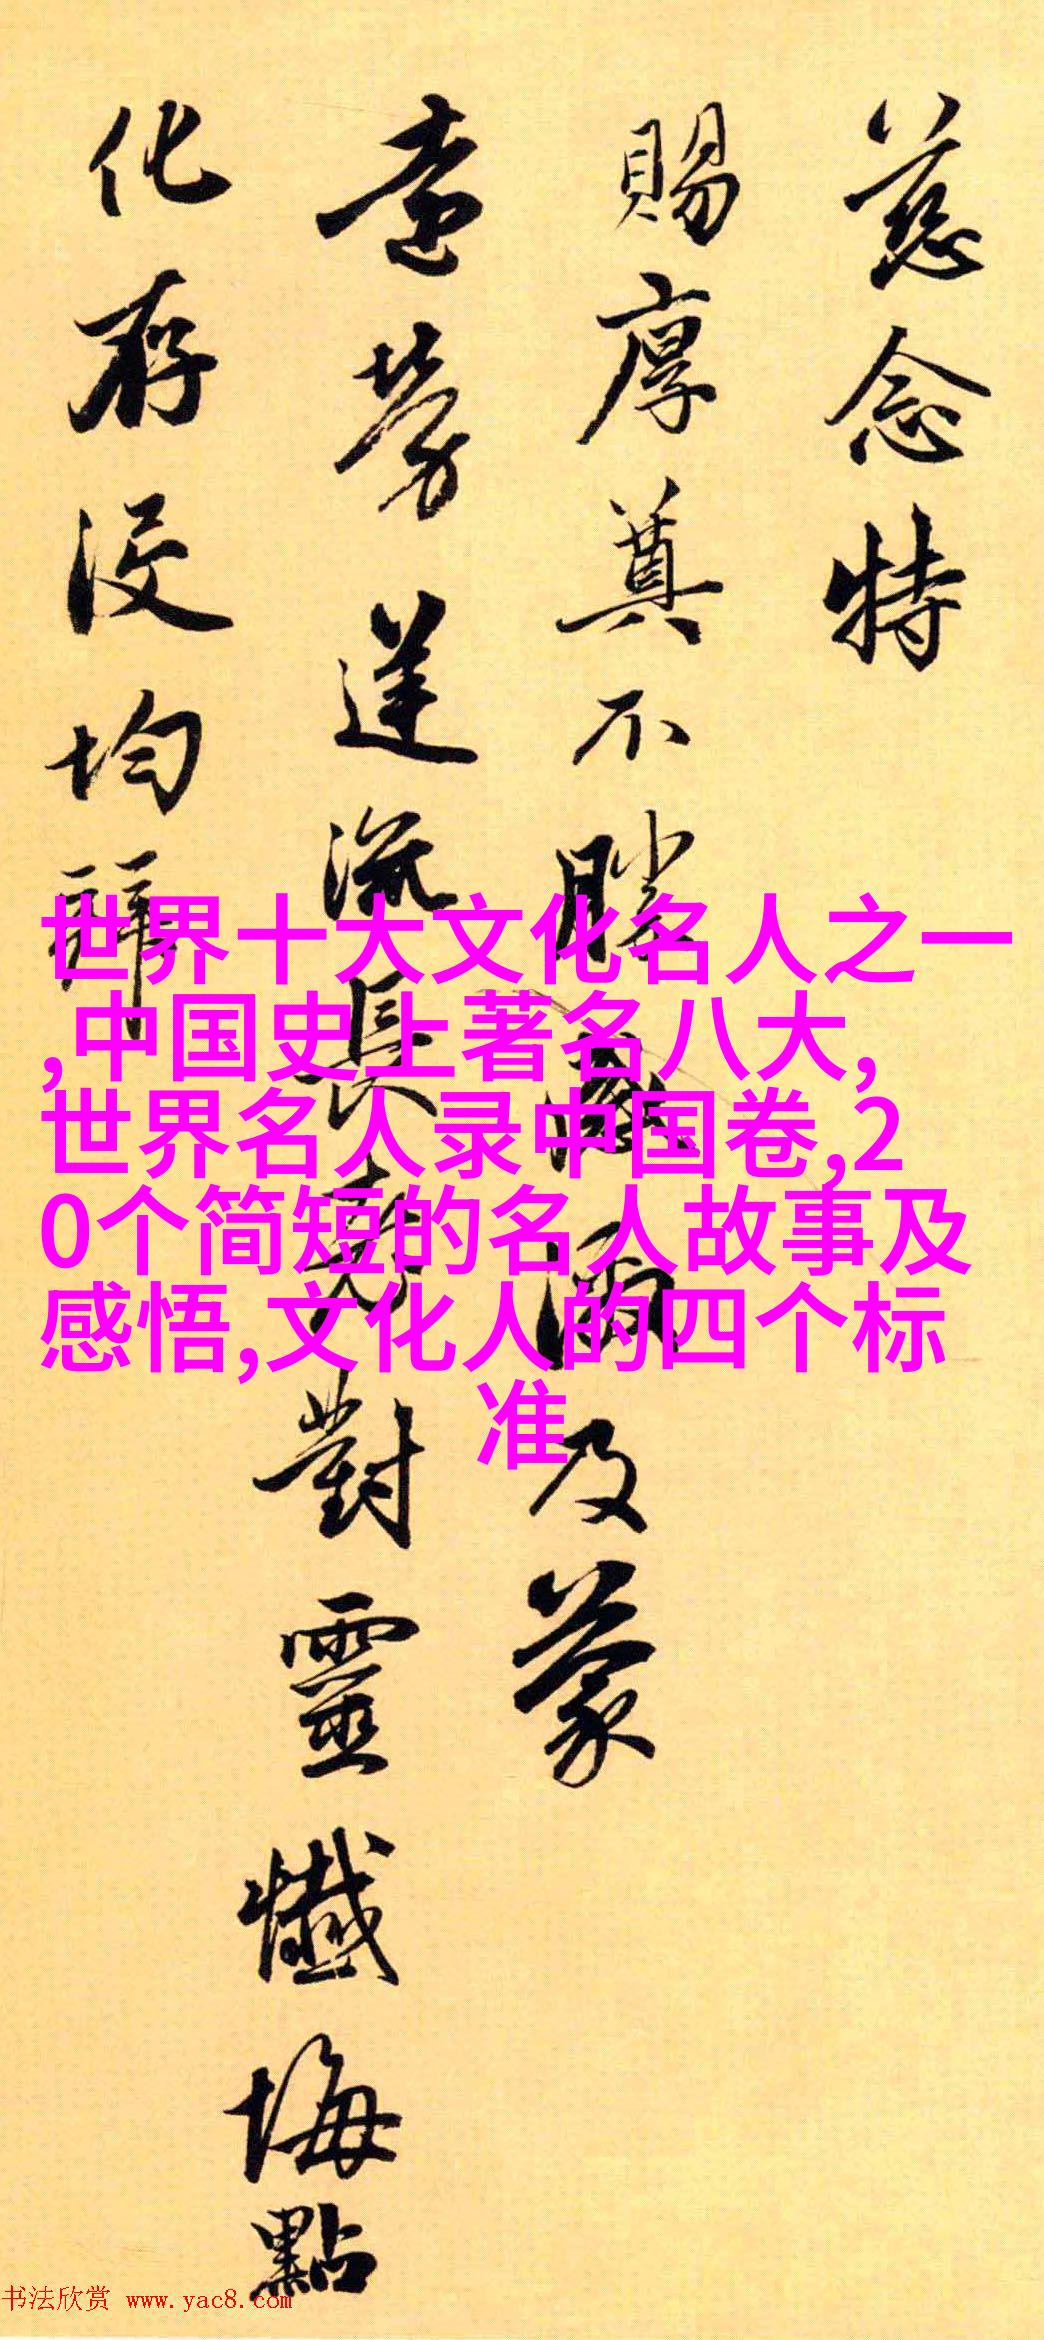 慈念特
賜厚奠不勝感及蒙
流長對靈懺悔點
化存没均
世界十大文化名人之一
,中国史上著名八大,
世界名人录中国卷,2
0个简短的名人故事及
感悟,文化人的四个标
准
书法欣赏 www.yac8.com